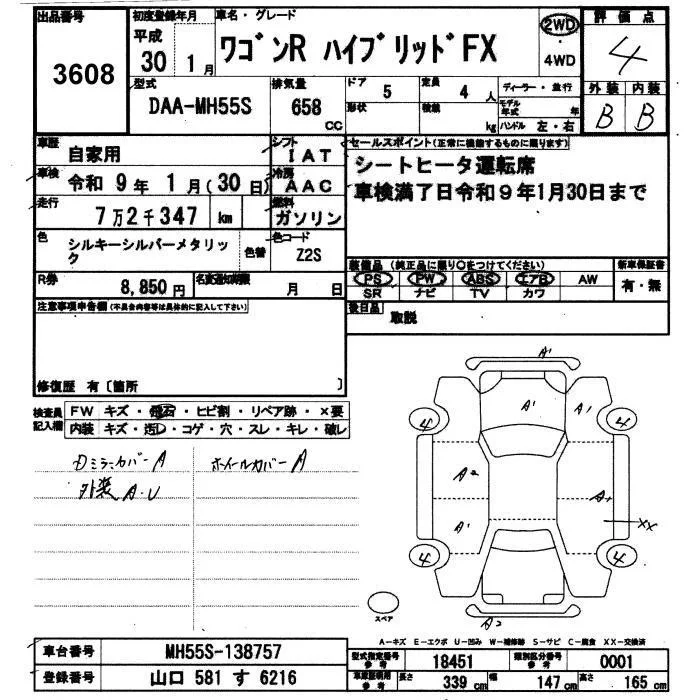 出品番号 初度登録年月 車名・グレード 2WD 評価点
3608 平成 30 1月 ワゴンR ハイブリッドFX 4WD 4
型式 排気量 ドア 5 定員 4人 ディーラー・並行 外装 内装
DAA-MH55S 658 CC 形状 積載 kg モデル年式 年 ハンドル 左・右 B B
車歴 自家用 シフト IAT セールスポイント(正常に機能するものに限ります)
車検 令和 9年 1月(30日) 冷房 AAC シートヒータ運転席
走行 7万2千347 km 燃料 ガソリン 車検満了日令和9年1月30日まで
色 シルキーシルバーメタリック 色替 色コード Z2S
装備品 (純正品に限り○をつけてください) 新車保証書
R券 8,850円 名変通知期限 月 日 PS PW ABS エアB AW 有・無
SR ナビ TV カワ
注意事項申告欄(不具合内容等は具体的に記入して下さい) 後日品 取説
修復歴 有〔箇所 〕
検査員記入欄 FW キズ・飛石・ヒビ割・リペア跡・×要
内装 キズ・汚レ・コゲ・穴・スレ・キレ・破レ
Dミラーカバー A ホイールカバー A
外装 A・U
A' A' A' 4 4
A2 A1 A' XX
4 4
スペア A2
A-キズ E-エクボ U-凹み W-補修跡 S-サビ C-腐食 XX-交換済
車台番号 MH55S-138757 型式指定番号 参考 18451 類別区分番号 参考 0001
登録番号 山口 581 す 6216 車車証明用 参考 長さ 339 cm 幅 147 cm 高さ 165 cm